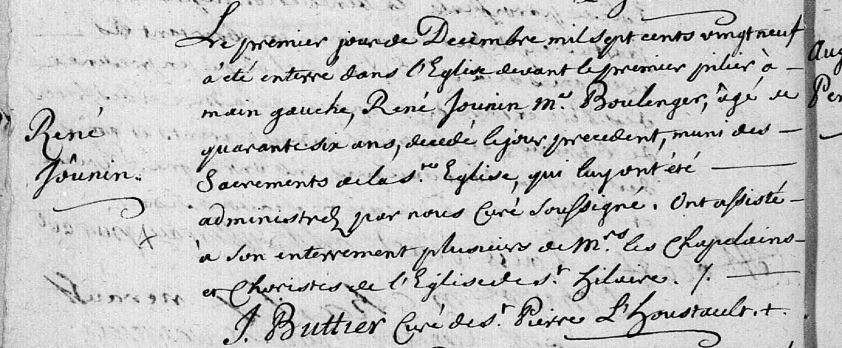 Le premier jour de Decembre mil sept cents vingt neuf
a été enterré dans l'Eglise devant le premier pilier à
main gauche, René Jounin m.e Boulenger, âgé de
quarante six ans, decedé le jour precedent, muni des
Sacrements de la s.te Eglise, qui luy ont été
administrez par nous Curé soussigné. Ont assisté
à son enterrement plusieurs de M.rs les Chapelains
et Choristes de l'Eglise de s.t hilaire. /.
J. Buttier Curé de s.t Pierre L'houstault. +.
René
Jounin.
Aug